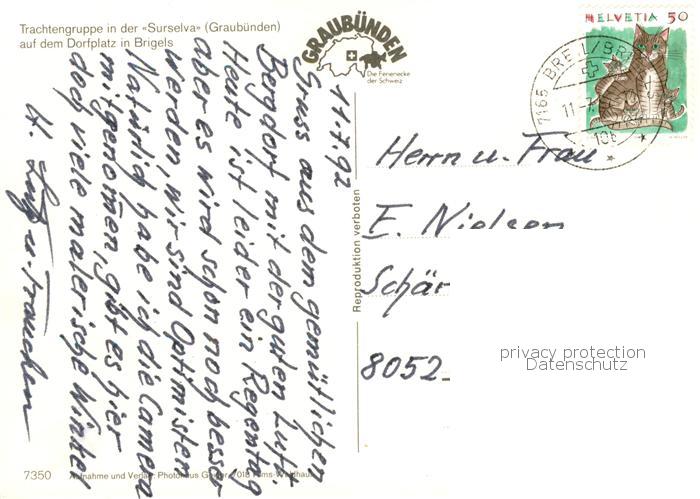 Trachtengruppe in der «Surselva» (Graubünden)
auf dem Dorfplatz in Brigels
GRAUBÜNDEN
Die Ferienecke
der Schweiz
HELVETIA 50
7165 BREIL/BR
11-7
11.7.92
Gruss aus dem gemütlichen
Bergdorf mit der guten Luft.
Heute ist leider ein Regentag
aber es wird schon noch besser
werden, wir sind Optimisten
Natürlich habe ich die Camera
mitgenomen, gibt es hier
doch viele malerische Winkel
H.
Herrn u. Frau
E. Nielsen
Schär
8052
Reproduktion verboten
privacy protection
Datenschutz
7350 Aufnahme und Verlag: Photohaus 7018 Flims-Waldhaus